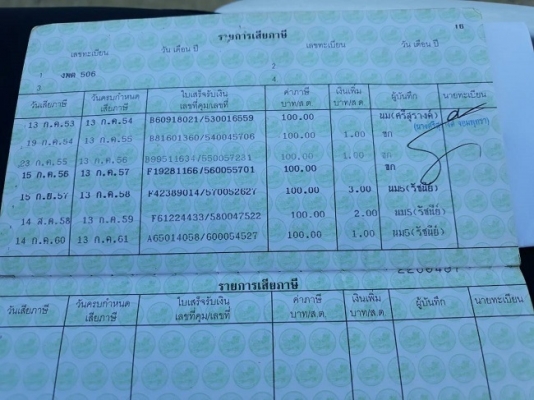 รายการเสียภาษี
เลขทะเบียน วัน เดือน ปี เลขทะเบียน วัน เดือน ปี
1 งพต 506 2.
3 4
วันเสียภาษี วันครบกำหนดเสียภาษี ใบเสร็จรับเงิน เลขที่คุม/เลขที่ ค่าภาษี บาท/ส.ต. เงินเพิ่ม บาท/ส.ต. ผู้บันทึก นายทะเบียน
13 ก.ค.53 13 ก.ค.54 B60918021/530016659 100.00 ผม(ศรีสุรางค์)
19 ก.ค.54 13 ก.ค.55 B81601360/540045706 100.00 1.00 ชก
23 ก.ค.55 13 ก.ค.56 B99511634/550057281 100.00 1.00 ชก
15 ก.ค.56 13 ก.ค.57 F19281166/560055701 100.00 ชก
15 ก.ย.57 13 ก.ค.58 F42389014/570052627 100.00 3.00 ผม5(รัชนีย์)
14 ส.ค.58 13 ก.ค.59 F61224433/580047522 100.00 2.00 ผม5(รัชนีย์)
14 ก.ค.60 13 ก.ค.61 A65014058/600054527 100.00 1.00 ผม5(รัชนีย์)
รายการเสียภาษี
วันเสียภาษี วันครบกำหนดเสียภาษี ใบเสร็จรับเงิน เลขที่คุม/เลขที่ ค่าภาษี บาท/ส.ต. เงินเพิ่ม บาท/ส.ต. ผู้บันทึก นายทะเบียน